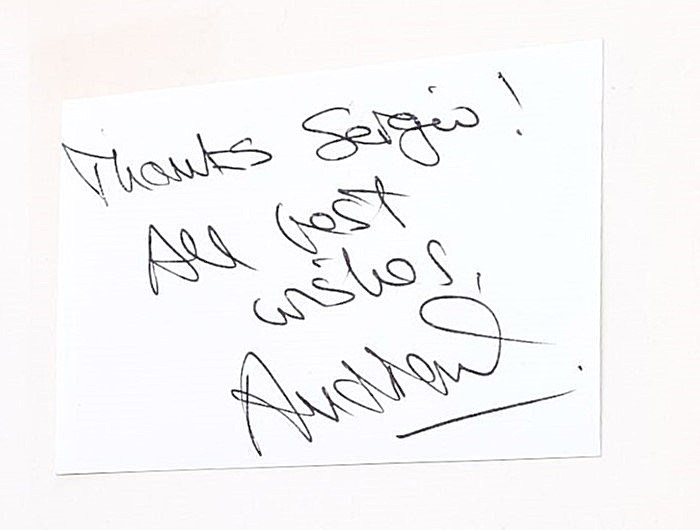 Thanks Sergio!
All best
wishes,